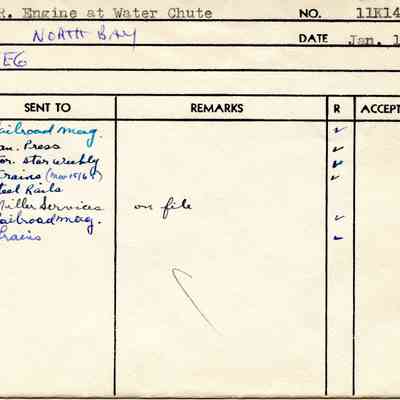 R. Engine at Water Chute NO. 11K14
NORTH BAY DATE Jan. 1
EG
SENT TO REMARKS R ACCEPT
ailroad mag. ✓
an. Press ✓
or. Star Weekly ✓
rains (Nov 15/65) ✓
teel Rails
Miller Services on file
ailroad mag. ✓
rains ✓